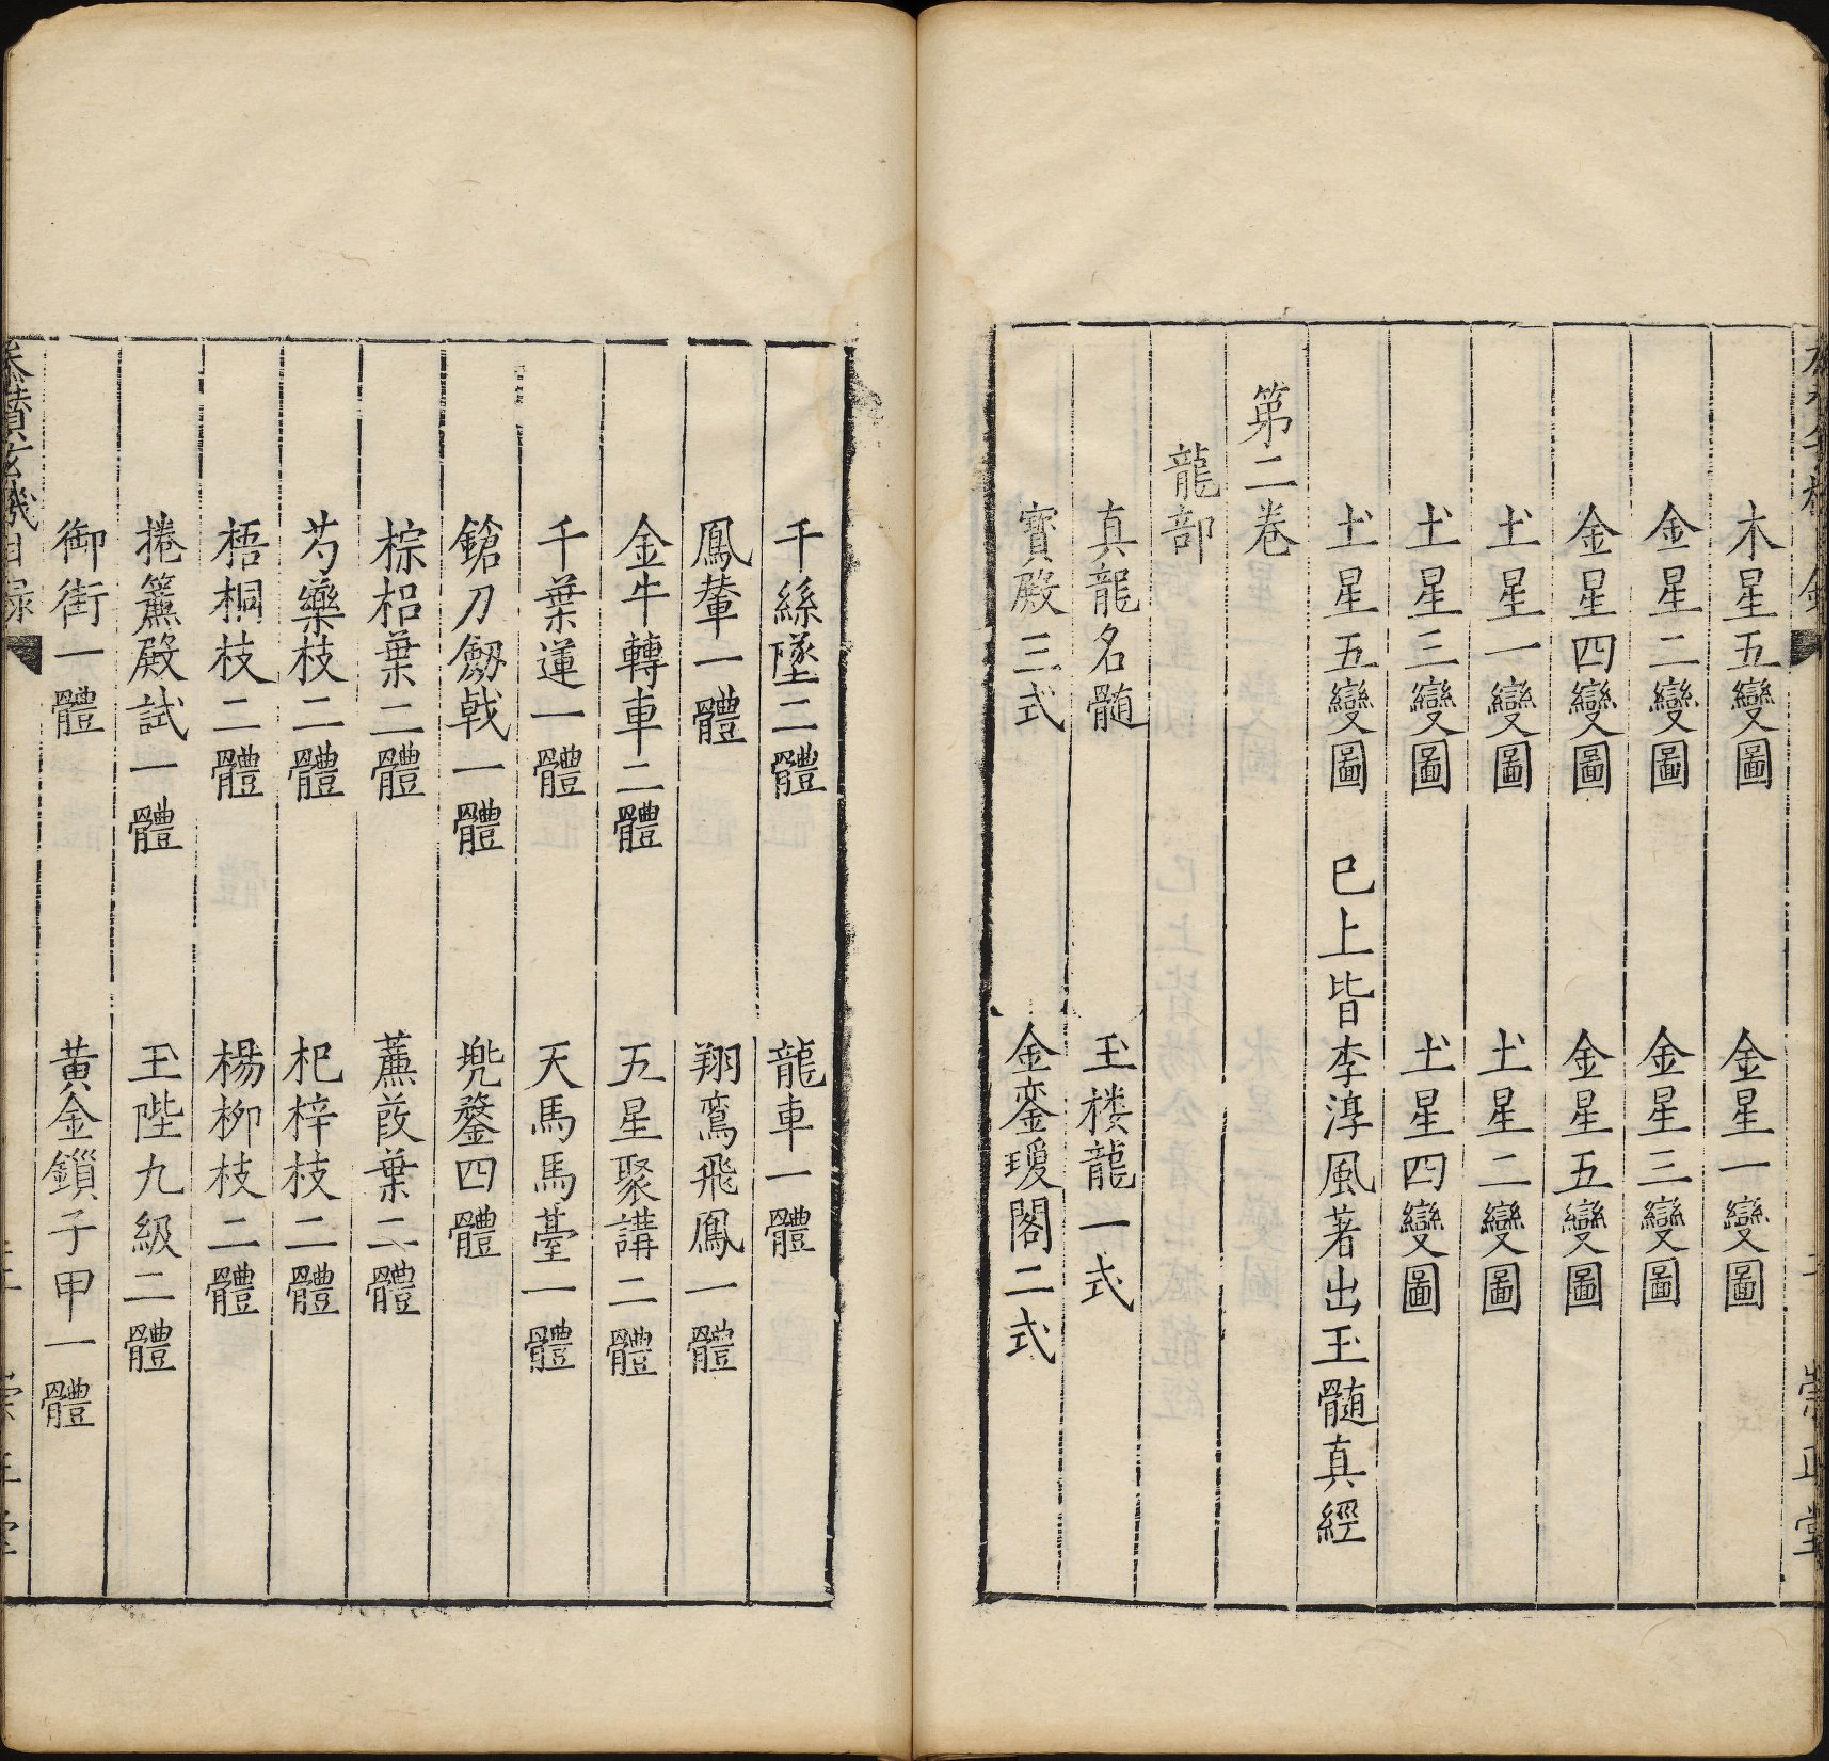 木星五變圖　金星一變圖
金星二變圖　金星三變圖
金星四變圖　金星五變圖
土星一變圖　土星二變圖
土星三變圖　土星四變圖
土星五變圖　已上皆李淳風著出玉髓真經
第二卷
龍部
真龍名髓　玉楼龍一式
寳殿三式　金鑾瑷閣二式
千絲墜二體　龍車一體
鳳輦一體　翔鸞飛鳳一體
金牛轉車二體　五星聚講二體
千葉蓮一體　天馬馬䑓一體
鎗刀劔戟一體　兠鍪四體
棕梠葉二體　蕉葮葉二體
芍藥枝二體　杞梓枝二體
梧桐枝二體　楊柳枝二體
捲簾殿試一體　玉陛九級二體
御街一體　黃金鎻子甲一體